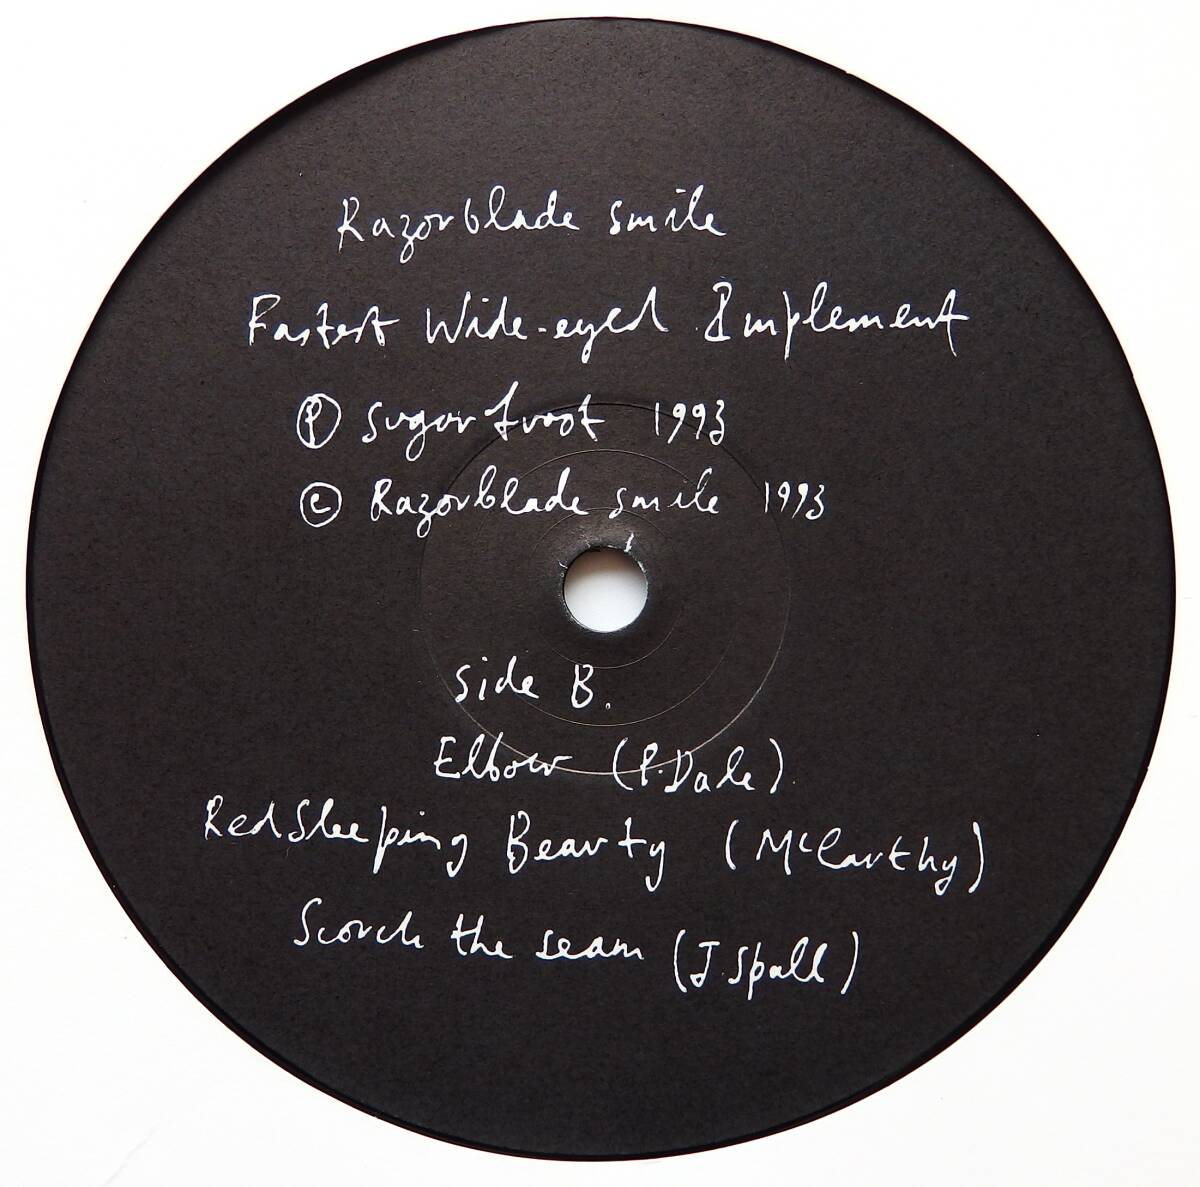 Razorblade smile
Fastest Wide-eyed Implement
Ⓟ sugarfrost 1993
© Razorblade smile 1993
side B.
Elbow (P. Dale).
Red Sleeping Beauty (McCarthy)
Scorch the seam (J Spall)